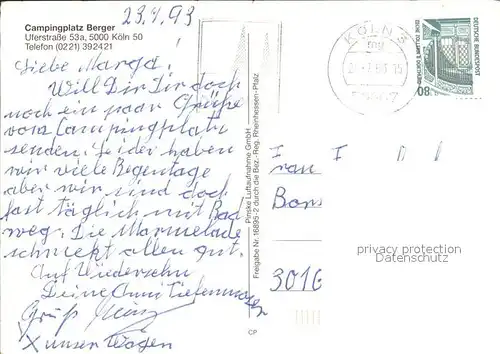 23.7.93
Campingplatz Berger
Uferstraße 53a, 5000 Köln 50
Telefon (0221) 392421
Liebe Marga!
Will Dir Dir doch
noch ein paar Grüße
vom Campingplatz
senden. Leider haben
wir viele Regentage
aber wir sind doch
fast täglich mit Rad
weg. Die Marmelade
schmekt allen gut.
Auf Wiedersehn
Deine Anni Tiefenmoser
Gruß Heinz
X unser Wagen
Pinske Luftaufnahme GmbH
Freigabe Nr. 16895-2 durch die Bez.-Reg. Rheinhessen-Pfalz
CP
KÖLN
DEUTSCHE BUNDESPOST
80
Frau
Bons
3016
privacy protection
Datenschutz